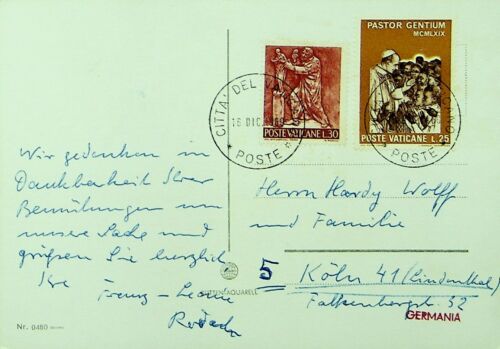 PASTOR GENTIUM
MCMLXIX
POSTE VATICANE L.25
POSTE VATICANE L.30
CITTA' DEL VAT
16 DIC.
POSTE
POSTE
Wir gedenken in
Dankbarkeit Ihrer
Bemühungen um
unsere Sache und
grüßen Sie herzlich
Ihre Franz-
Herrn Hardy Wolff
und Familie
5 Köln 41 (Lindenthal)
Falkenburgstr. 32
GERMANIA
AQUARELL
Nr. 0480